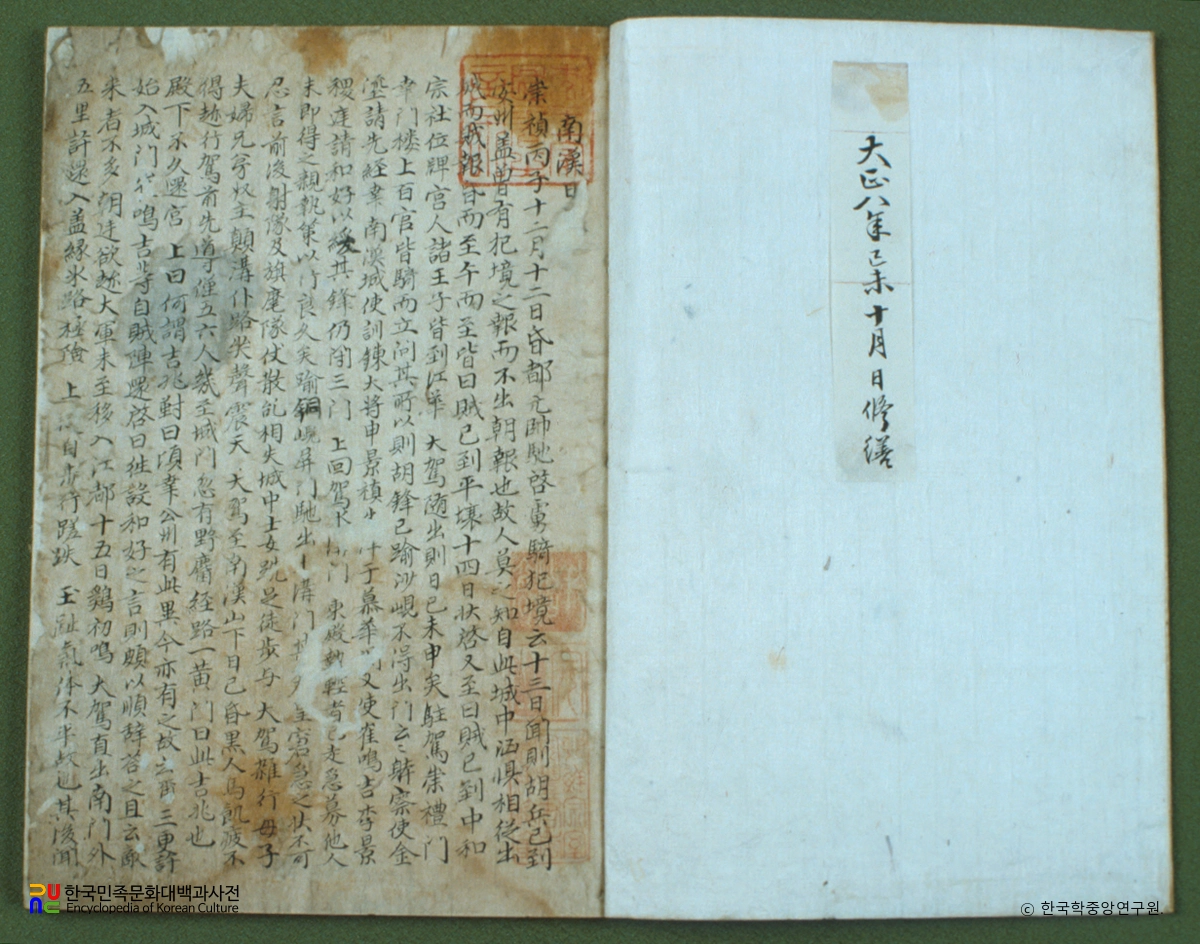 大正八年己未十月日修繕
南漢日
崇禎丙子十二月十二日昏都元帥馳啓虜騎犯境云十三日聞則胡兵已到
安州盖曾有犯境之報而不出朝報也故人莫之知自此城中洶惧相従出
城而賊報昏而至午而至皆曰賊已到平壤十四日状啓又至曰賊已到中和
宗社位牌宮人諸王子皆到江華 大駕随出則日已未申矣駐駕崇禮門
幸門楼上百官皆騎而立問其所以則胡鋒已踰沙峴不得出門云云
瀣請先經幸南漢城使訓鍊大將申景禎 于慕華 又使崔鳴吉李景
稷進請和好以緩其鋒仍閉三門 上回駕 門 東
未即得之親執策以行良久矣踰銅峴屏門馳出 溝門 窘急之状不可
忍言前後射隊及旗麾隊仗散乱相失城中士女跣足徒步与 大駕雜行母子
夫婦兄字奴主顛溝仆路哭聲震天 大駕至南漢山下日已昏黒人馬飢疲不
得趂行駕前先導僅五六人幾至城門忽有野麕経路一黄門曰此吉兆也
殿下不久還宮 上曰何謂吉兆對曰頃幸公州有此里今亦有之故云爾 三更許
始入城門 鳴吉等自賊陣還啓曰徃設和好之言則頗以順辞答之且云敵
来者不多 朝廷欲趂大軍未至移入江都十五日鷄初鳴 大駕直出南門外
五里許還入盖縁氷路極險 上 自步行蹉跌 玉趾氣体不平故也其後聞
한국민족문화대백과사전
Encyclopedia of Korean Culture
© 한국학중앙연구원